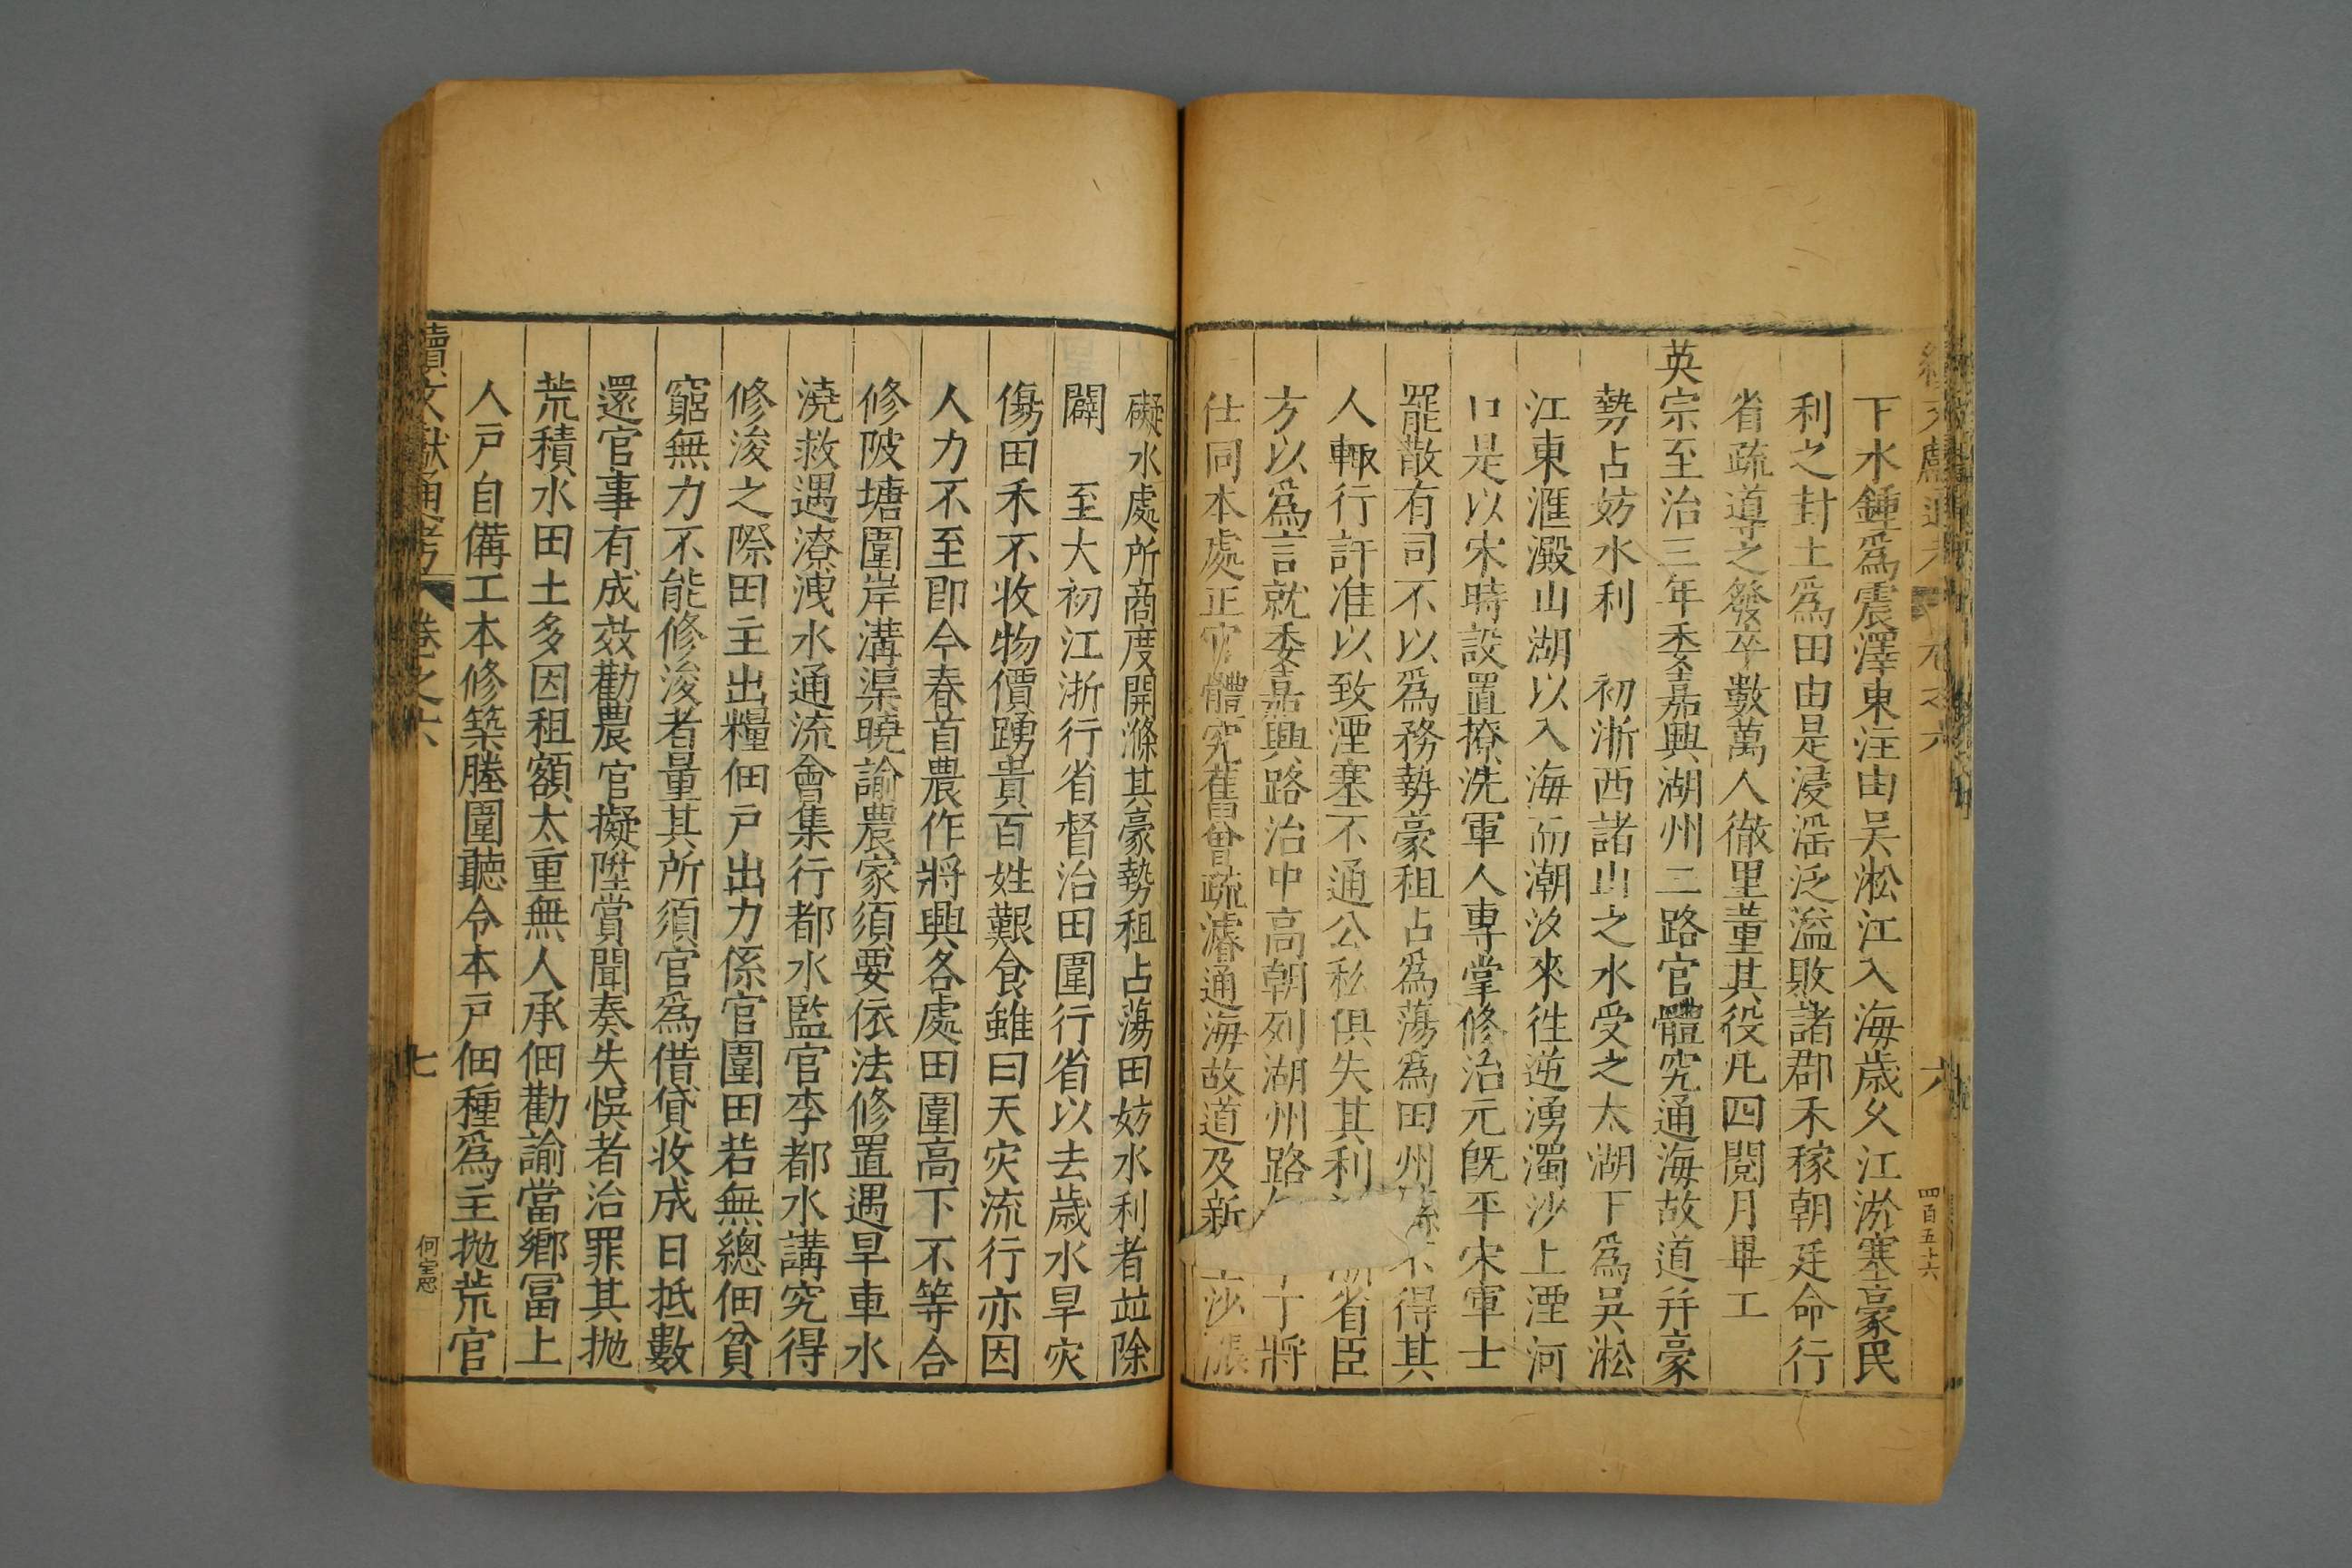 續文獻通考 卷之六 六 四百五十六
下水鍾爲震澤東注由吴淞江入海歲久江淤塞豪民
利之封土爲田由是浸滛泛溢敗諸郡禾稼朝廷命行
省疏導之發卒數萬人徹里董其役凡四閲月畢工
英宗至治三年委嘉興湖州二路官體究通海故道并豪
勢占妨水利 初浙西諸山之水受之太湖下爲吴淞
江東滙澱山湖以入海而潮汐來徃逆湧濁沙上湮河
口是以宋時設置撩洗軍人專掌修治元旣平宋軍士
罷散有司不以爲務勢豪租占爲蕩爲田州縣不得其
人輙行許准以致湮塞不通公私俱失其利 浙省臣
方以爲言就委嘉興路治中高朝列湖州路 丁將
仕同本處正官體究舊曾疏濬通海故道及新 沙漲
礙水處所商度開滌其豪勢租占蕩田妨水利者竝除
闢 至大初江浙行省督治田圍行省以去歲水旱灾
傷田禾不收物價踴貴百姓艱食雖曰天灾流行亦因
人力不至即今春首農作將興各處田圍高下不等合
修陂塘圍岸溝渠曉諭農家須要依法修置遇旱車水
澆救遇潦洩水通流會集行都水監官李都水講究得
修浚之際田主出糧佃戸出力係官圍田若無總佃貧
窮無力不能修浚者量其所須官爲借貸收成日抵數
還官事有成效勸農官擬陞賞聞奏失悞者治罪其抛
荒積水田土多因租額太重無人承佃勸諭當鄉冨上
人戸自備工本修築塍圍聽令本戸佃種爲主抛荒官
續文獻通考 卷之六 七